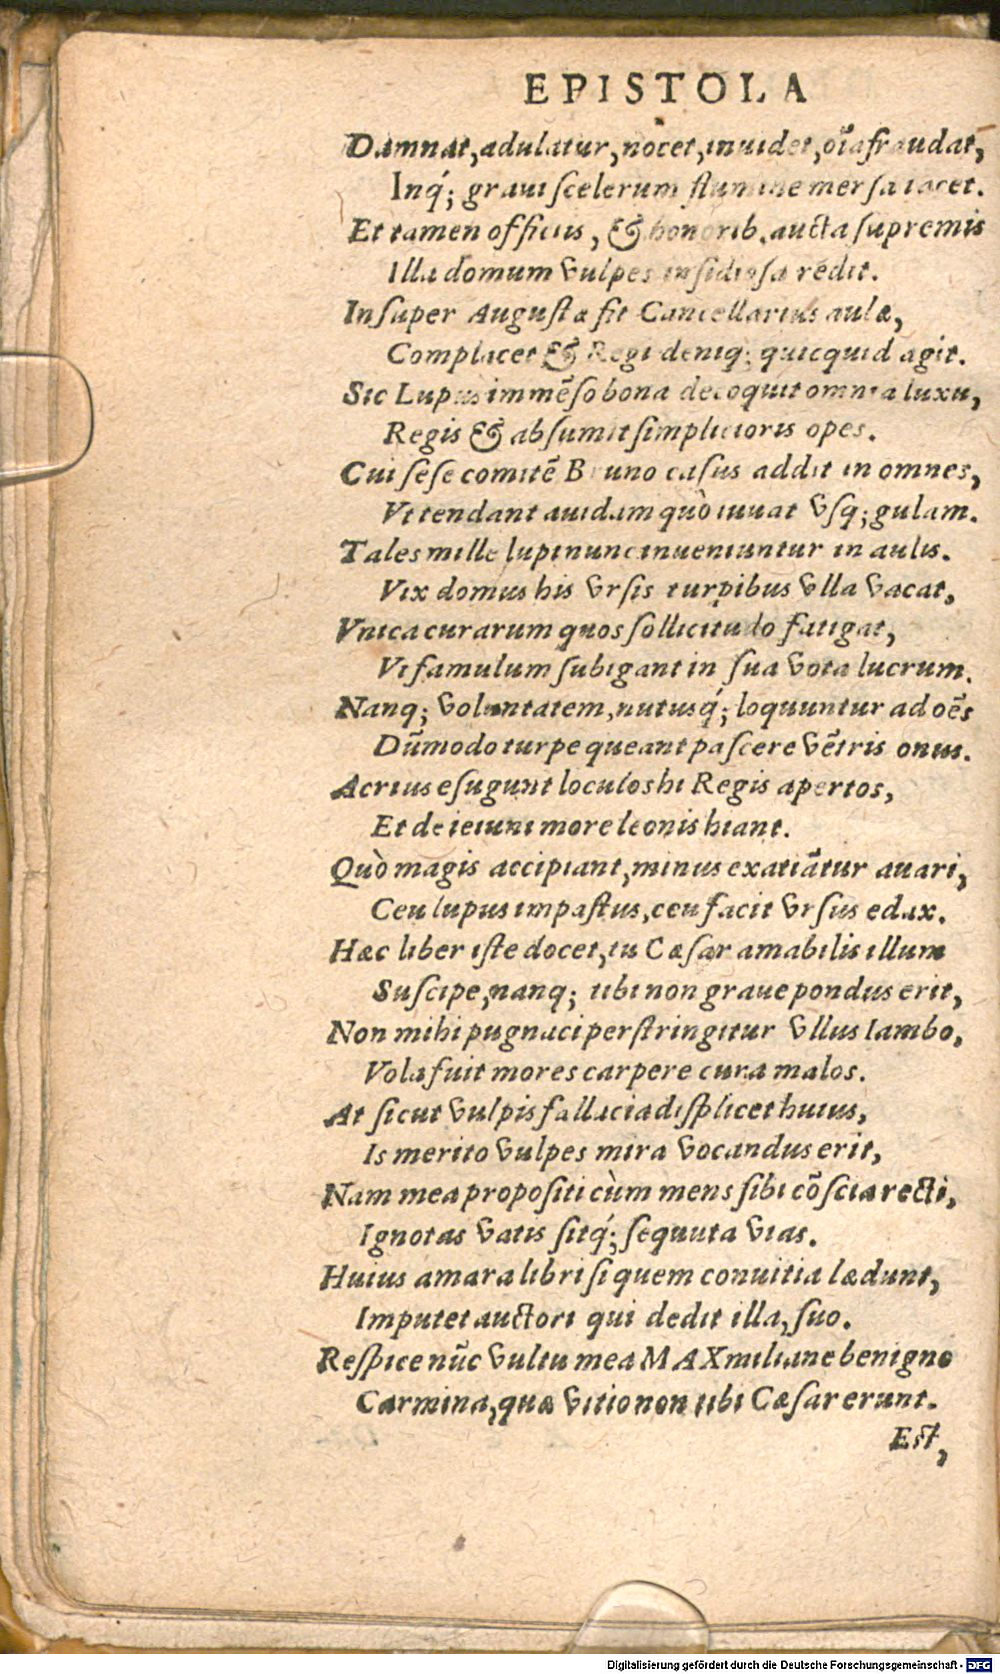 EPISTOLA
Damnat, adulatur, nocet, inuidet, oĩa fraudat,
Inq́; graui scelerum flumine mersa iacet.
Et tamen officiis, & honorib. aucta supremis
Illa domum vulpes insidiosa redit.
Insuper Augustæ fit Cancellarius aulæ,
Complacet & Regi deniq; quicquid agit.
Sic Lupus immẽso bona decoquit omnia luxu,
Regis & absumit simplicioris opes.
Cui sese comitẽ Bruno casus addit in omnes,
Vt tendant auidam quò iuuat vsq; gulam.
Tales mille lupi nunc inueniuntur in aulis.
Vix domus his vrsis turpibus vlla vacat,
Vnica curarum quos sollicitudo fatigat,
Vt famulum subigant in sua vota lucrum.
Nanq; voluntatem, nutusq́; loquuntur ad oẽs
Dũmodo turpe queant pascere vẽtris onus.
Acrius esugunt loculos hi Regis apertos,
Et de ieiuni more leonis hiant.
Quò magis accipiant, minus exatiãtur auari,
Ceu lupus impastus, ceu facit vrsus edax.
Hæc liber iste docet, tu Cæsar amabilis illum
Suscipe, nanq; tibi non graue pondus erit,
Non mihi pugnaci perstringitur vllus Iambo,
Vola fuit mores carpere cura malos.
At sicut vulpis fallacia displicet huius,
Is merito vulpes mira vocandus erit,
Nam mea propositi cùm mens sibi cõscia recti,
Ignotas vatis sitq́; sequuta vias.
Huius amara libri si quem conuitia lædunt,
Imputet auctori qui dedit illa, suo.
Respice nũc vultu mea MAXmiliane benigno
Carmina, quæ vitio non tibi Cæsar erunt.
Est,
Digitalisierung gefördert durch die Deutsche Forschungsgemeinschaft - DFG